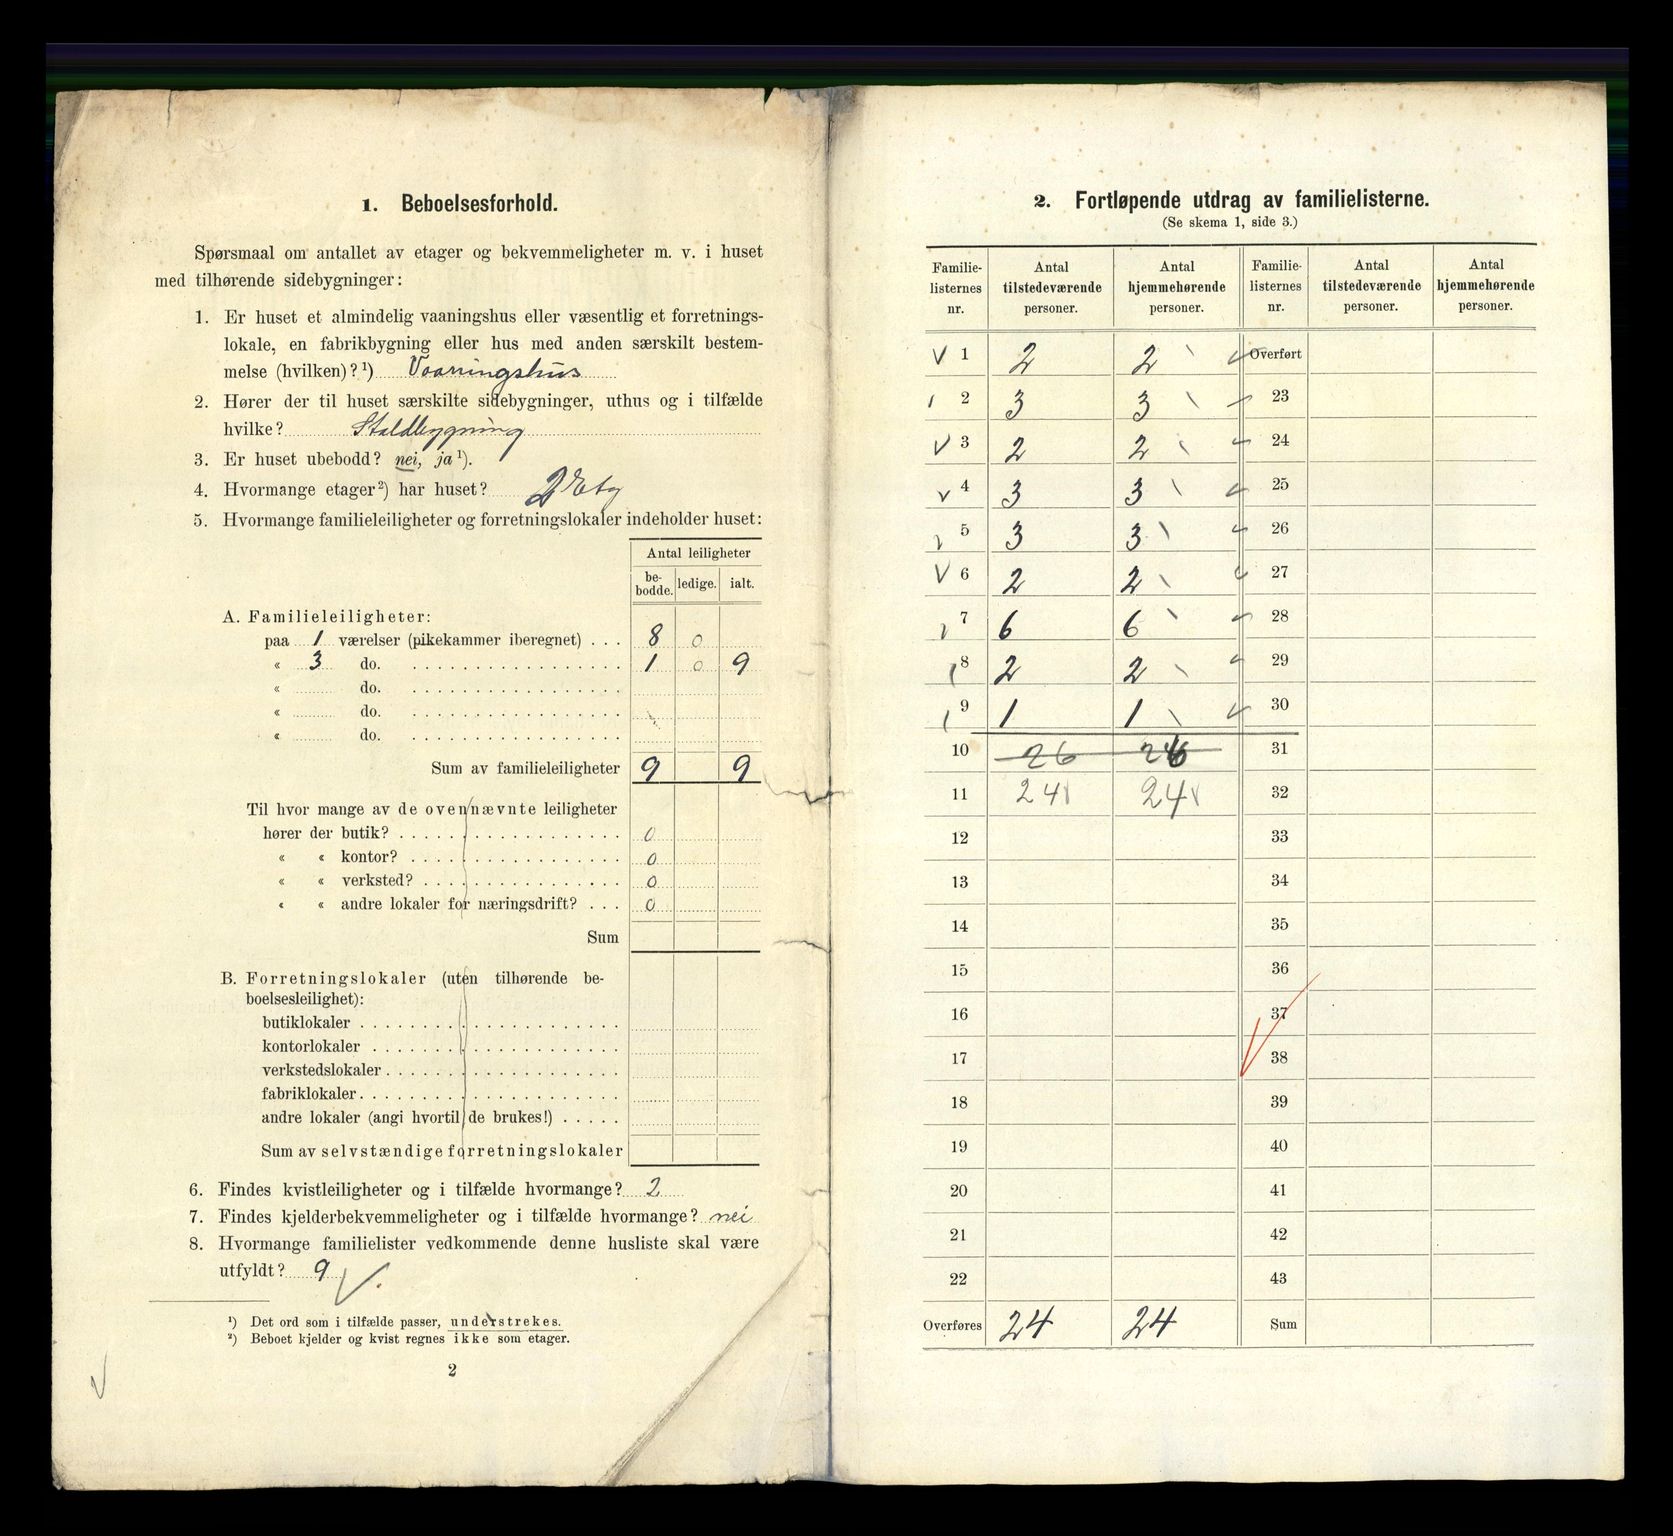 1. Beboelsesforhold.
Spørsmaal om antallet av etager og bekvemmeligheter m. v. i huset
med tilhørende sidebygninger:
1. Er huset et almindelig vaaningshus eller væsentlig et forretnings-
lokale, en fabrikbygning eller hus med anden særskilt bestem-
melse (hvilken)? ¹) Vaaningshus
2. Hører der til huset særskilte sidebygninger, uthus og i tilfælde
hvilke? Staldbygning
3. Er huset ubebodd? nei, ja ¹).
4. Hvormange etager ²) har huset? 2 Etg
5. Hvormange familieleiligheter og forretningslokaler indeholder huset:
Antal leiligheter
be-
bodde. ledige. ialt.
A. Familieleiligheter:
paa 1 værelser (pikekammer iberegnet) . . . 8 0
« 3 do. . . . . . . . . . . . . . . . . . 1 0 9
« do. . . . . . . . . . . . . . . . . .
« do. . . . . . . . . . . . . . . . . .
« do. . . . . . . . . . . . . . . . . .
Sum av familieleiligheter 9 9
Til hvor mange av de ovennævnte leiligheter
hører der butik? . . . . . . . . . . . . . . . . . 0
« « kontor? . . . . . . . . . . . . . . . . 0
« « verksted? . . . . . . . . . . . . . . . 0
« « andre lokaler for næringsdrift? . . . 0
Sum
B. Forretningslokaler (uten tilhørende be-
boelsesleilighet):
butiklokaler . . . . . . . . . . . . . . . . . . . .
kontorlokaler . . . . . . . . . . . . . . . . . . .
verkstedslokaler . . . . . . . . . . . . . . . . . .
fabriklokaler . . . . . . . . . . . . . . . . . . . .
andre lokaler (angi hvortil de brukes!) . . . . .
Sum av selvstændige forretningslokaler
6. Findes kvistleiligheter og i tilfælde hvormange? 2
7. Findes kjelderbekvemmeligheter og i tilfælde hvormange? nei
8. Hvormange familielister vedkommende denne husliste skal være
utfyldt? 9
¹) Det ord som i tilfælde passer, understrekes.
²) Beboet kjelder og kvist regnes ikke som etager.
2
2. Fortløpende utdrag av familielisterne.
(Se skema 1, side 3.)
Familie- Antal Antal Familie- Antal Antal
listernes tilstedeværende hjemmehørende listernes tilstedeværende hjemmehørende
nr. personer. personer. nr. personer. personer.
1 2 2 Overført
2 3 3 23
3 2 2 24
4 3 3 25
5 3 3 26
6 2 2 27
7 6 6 28
8 2 2 29
9 1 1 30
10 26 26 31
11 24 24 32
12 33
13 34
14 35
15 36
16 37
17 38
18 39
19 40
20 41
21 42
22 43
Overføres 24 24 Sum